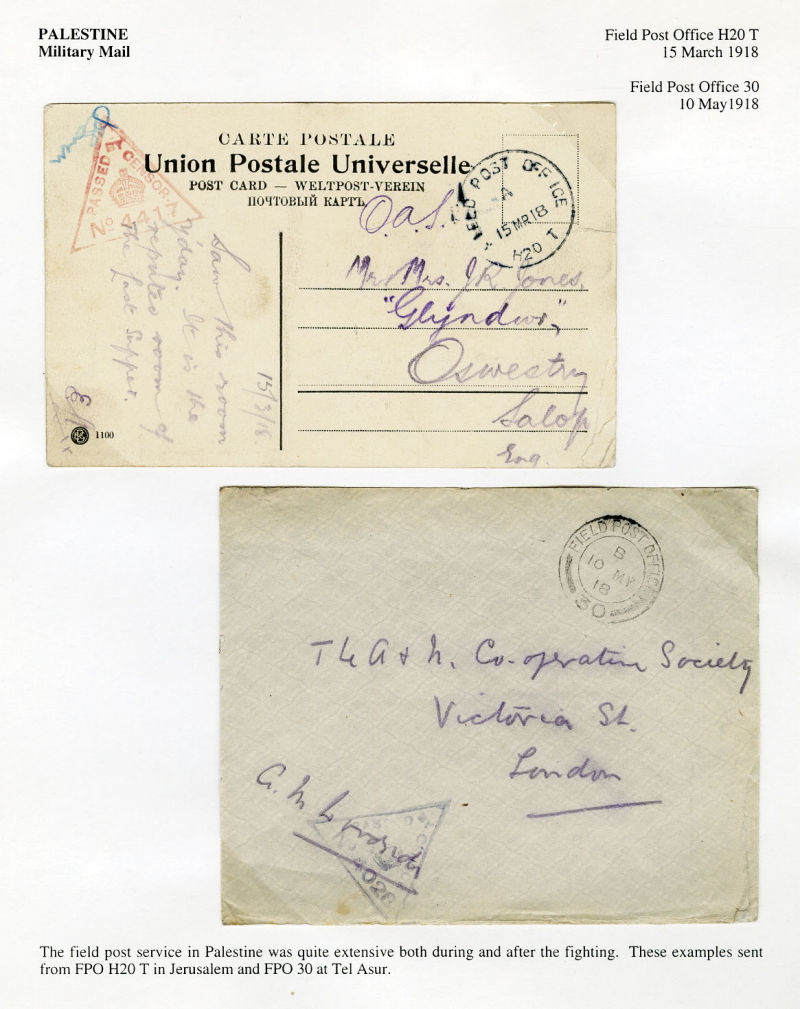 PALESTINE
Military Mail
Field Post Office H20 T
15 March 1918
Field Post Office 30
10 May1918
CARTE POSTALE
Union Postale Universelle
POST CARD — WELTPOST-VEREIN
ПОЧТОВЫЙ КАРТЪ
PASSED BY CENSOR
No 447
FIELD POST OFFICE
A
15 MR 18
H20 T
O.a.S.
Mr Mrs. J R Jones.
"Glyndwr",
Oswestry
Salop
Eng.
15/3/18
Saw this room
y'day. It is the
reputed room of
The Last Supper.
1100
FIELD POST OFFICE
B
10 MY
18
30
The A & N. Co-operative Society
Victoria St.
London
4020
The field post service in Palestine was quite extensive both during and after the fighting. These examples sent
from FPO H20 T in Jerusalem and FPO 30 at Tel Asur.